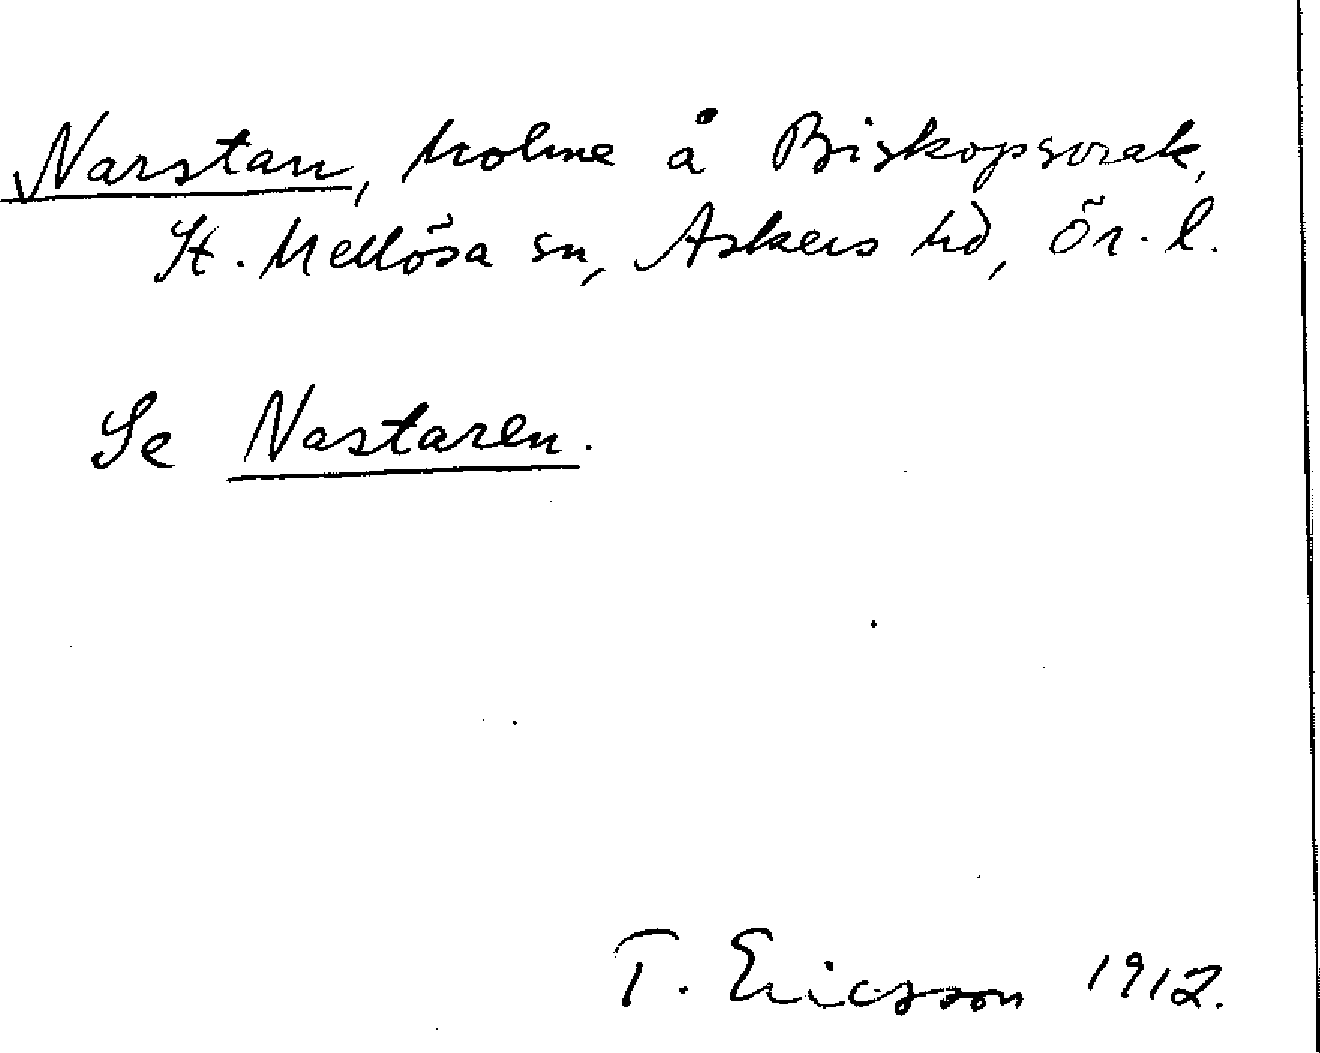 Narstan, holme å Biskopsvrak,
St. Mellösa sn, Askers hd, Ör. l.
Se Nastaren.
T. Ericsson 1912.